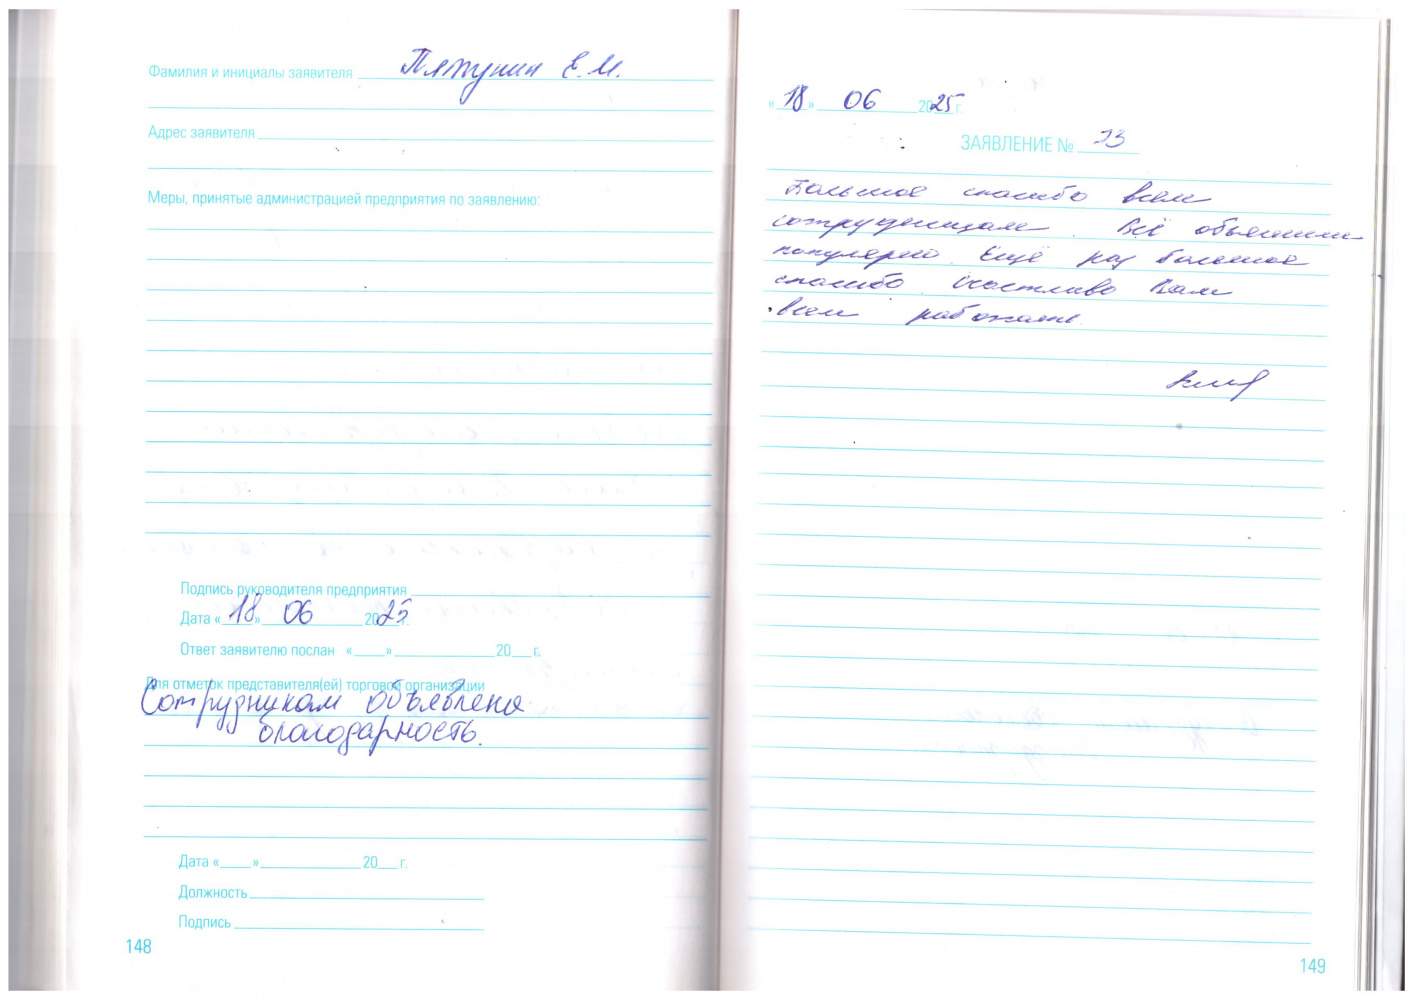 Фамилия и инициалы заявителя Пяжунин Е.М.
Адрес заявителя
Меры, принятые администрацией предприятия по заявлению:
Подпись руководителя предприятия
Дата «18» 06 2025 г.
Ответ заявителю послан « » 20 г.
Для отметок представителя(ей) торговой организации
Сотрудникам объявлена
благодарность.
Дата « » 20 г.
Должность
Подпись
148
«18» 06 2025 г.
ЗАЯВЛЕНИЕ № 73
Большое спасибо всем
сотрудницам. Всё объяснили
популярно. Ещё раз большое
спасибо. Счастливо Вам
всем работать.
149